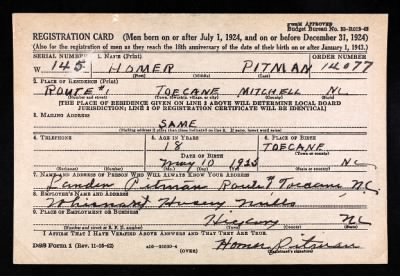 FORM APPROVED
Budget Bureau No. 33-R012-43
REGISTRATION CARD (Men born on or after July 1, 1924, and on or before December 31, 1924)
(Also for the registration of men as they reach the 18th anniversary of the date of their birth on or after January 1, 1943.)
SERIAL NUMBER 1. NAME (Print) ORDER NUMBER
W 145 HOMER PITMAN 14077
(First) (Middle) (Last)
2. PLACE OF RESIDENCE (Print)
ROUTE #1 TOECANE MITCHELL NC
(Number and street) (Town, township, village, or city) (County) (State)
[THE PLACE OF RESIDENCE GIVEN ON LINE 2 ABOVE WILL DETERMINE LOCAL BOARD
JURISDICTION; LINE 2 OF REGISTRATION CERTIFICATE WILL BE IDENTICAL]
3. MAILING ADDRESS
SAME
(Mailing address if other than place indicated on line 2. If same, insert word same)
4. TELEPHONE 5. AGE IN YEARS 6. PLACE OF BIRTH
18 TOECANE
DATE OF BIRTH (Town or county)
May 10 1925 NC
(Exchange) (Number) (Mo.) (Day) (Yr.) (State or country)
7. NAME AND ADDRESS OF PERSON WHO WILL ALWAYS KNOW YOUR ADDRESS
Landon Pitman Route #1 Toecane N.C.
8. EMPLOYER'S NAME AND ADDRESS
Whisnant Hosiery Mills
9. PLACE OF EMPLOYMENT OR BUSINESS
Hickory NC
(Number and street or R. F. D. number) (Town) (County) (State)
I AFFIRM THAT I HAVE VERIFIED ABOVE ANSWERS AND THAT THEY ARE TRUE.
DSS Form 1 (Rev. 11-16-42) (OVER) Homer Pitman
(Registrant's signature)